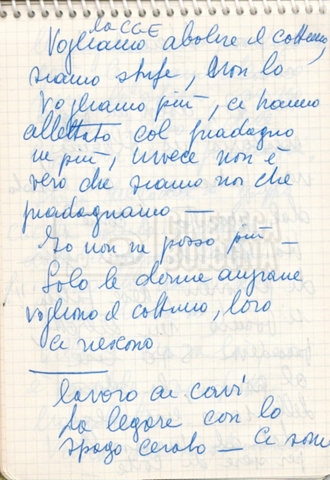 la CGE
Vogliamo abolire il cottimo,
siamo stufe, non lo
vogliamo più, ci hanno
allettato col guadagno
in più, invece non è
vero che siamo noi che
guadagnamo —
Io non ne posso più —
Solo le donne anziane
vogliono il cottimo, loro
ci riescono
lavoro ai cavi
da legare con lo
spago cerato — Ci sono